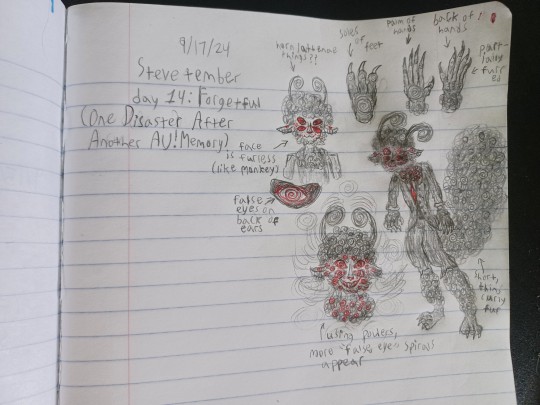 9/17/24
Stevetember
day 14: Forgetful
(One Disaster After
Another AU! Memory)
horn/antennae
things?!
soles
of
feet
palm of
hands
back of
hands
!
part-
ially
furr
ed
face
is furless
(like monkey)
false
eyes on
back of
ears
(using powers,
more "false eye" spirals
appear
short,
thin,
curly
fur